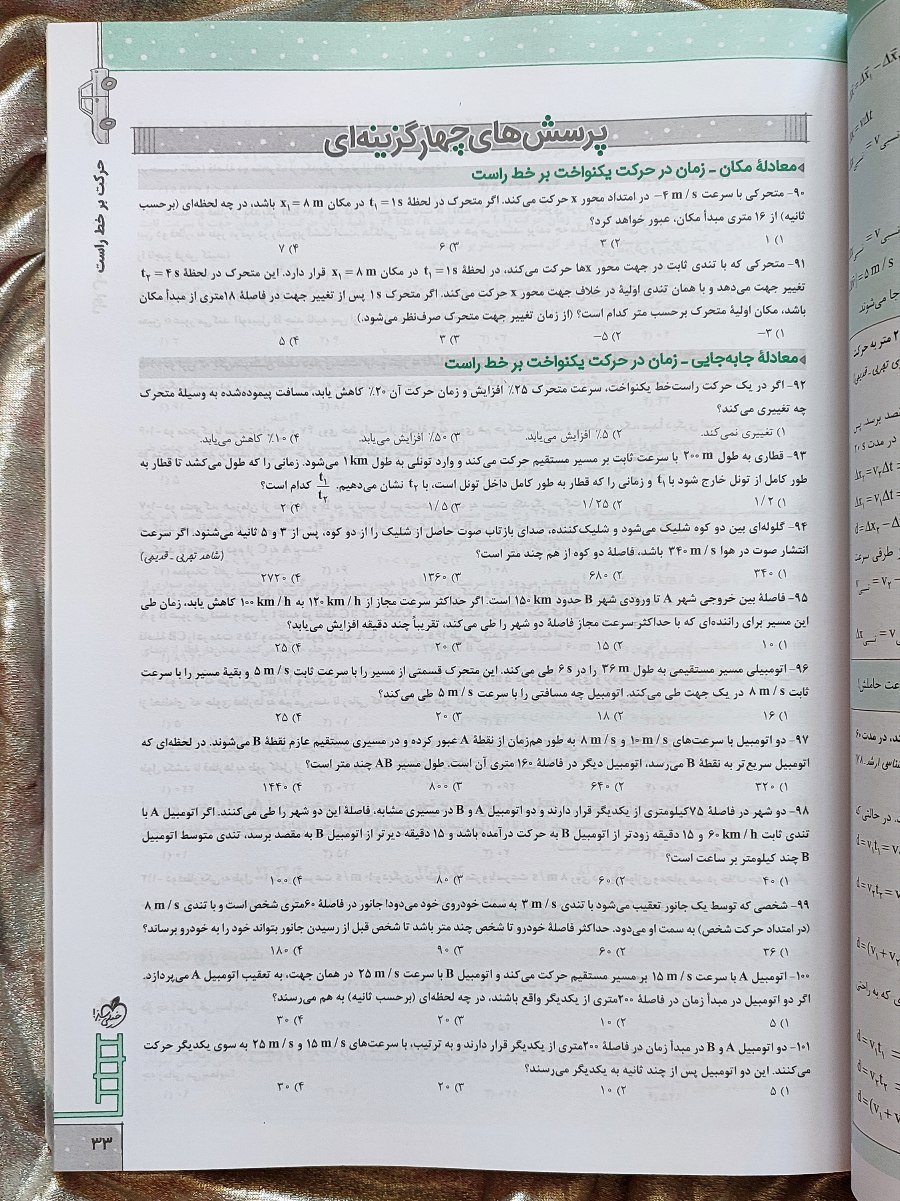 پرسش‌های چهارگزینه‌ای
معادلهٔ مکان - زمان در حرکت یکنواخت بر خط راست
۹۰- متحرکی با سرعت ‎−۴ m/s‎ در امتداد محور x حرکت می‌کند. اگر متحرک در لحظهٔ t₁ = ۱s در مکان x₁ = ۸ m باشد، در چه لحظه‌ای (برحسب
ثانیه) از ۱۶ متری مبدأ مکان، عبور خواهد کرد؟
۱) ۱ ۲) ۳ ۳) ۶ ۴) ۷
۹۱- متحرکی که با تندی ثابت در جهت محور xها حرکت می‌کند، در لحظهٔ t₁ = ۱s در مکان x₁ = ۸ m قرار دارد. این متحرک در لحظهٔ t₂ = ۴s
تغییر جهت می‌دهد و با همان تندی اولیهٔ در خلاف جهت محور x حرکت می‌کند. اگر متحرک ۱s پس از تغییر جهت در فاصلهٔ ۱۸متری از مبدأ مکان
باشد، مکان اولیهٔ متحرک برحسب متر کدام است؟ (از زمان تغییر جهت متحرک صرف‌نظر می‌شود.)
۱) ۳− ۲) ۵− ۳) ۳ ۴) ۵
معادلهٔ جابه‌جایی - زمان در حرکت یکنواخت بر خط راست
۹۲- اگر در یک حرکت راست‌خط یکنواخت، سرعت متحرک ۲۵٪ افزایش و زمان حرکت آن ۲۰٪ کاهش یابد، مسافت پیموده‌شده به وسیلهٔ متحرک
چه تغییری می‌کند؟
۱) تغییری نمی‌کند. ۲) ۵٪ افزایش می‌یابد. ۳) ۵۰٪ افزایش می‌یابد. ۴) ۱۰٪ کاهش می‌یابد.
۹۳- قطاری به طول ۲۰۰ m با سرعت ثابت بر مسیر مستقیم حرکت می‌کند و وارد تونلی به طول ۱km می‌شود. زمانی را که طول می‌کشد تا قطار به
طور کامل از تونل خارج شود با t₁ و زمانی را که قطار به طور کامل داخل تونل است، با t₂ نشان می‌دهیم. t₁/t₂ کدام است؟
۱) ۱/۲ ۲) ۱/۲۵ ۳) ۱/۵ ۴) ۲
۹۴- گلوله‌ای بین دو کوه شلیک می‌شود و شلیک‌کننده، صدای بازتاب صوت حاصل از شلیک را از دو کوه، پس از ۳ و ۵ ثانیه می‌شنود. اگر سرعت
انتشار صوت در هوا ۳۴۰ m/s باشد، فاصلهٔ دو کوه از هم چند متر است؟ (شاهد تجربی - قدیمی)
۱) ۳۴۰ ۲) ۶۸۰ ۳) ۱۳۶۰ ۴) ۲۷۲۰
۹۵- فاصلهٔ بین خروجی شهر A تا ورودی شهر B حدود ۱۵۰ km است. اگر حداکثر سرعت مجاز از ۱۲۰ km/h به ۱۰۰ km/h کاهش یابد، زمان طی
این مسیر برای راننده‌ای که با حداکثر سرعت مجاز فاصلهٔ دو شهر را طی می‌کند، تقریباً چند دقیقه افزایش می‌یابد؟
۱) ۱۰ ۲) ۱۵ ۳) ۲۰ ۴) ۲۵
۹۶- اتومبیلی مسیر مستقیمی به طول ۳۶ m را در ۶ s طی می‌کند. این متحرک قسمتی از مسیر را با سرعت ثابت ۵ m/s و بقیهٔ مسیر را با سرعت
ثابت ۸ m/s در یک جهت طی می‌کند. اتومبیل چه مسافتی را با سرعت ۵ m/s طی می‌کند؟
۱) ۱۶ ۲) ۱۸ ۳) ۲۰ ۴) ۲۵
۹۷- دو اتومبیل با سرعت‌های ۱۰ m/s و ۸ m/s به طور هم‌زمان از نقطهٔ A عبور کرده و در مسیری مستقیم عازم نقطهٔ B می‌شوند. در لحظه‌ای که
اتومبیل سریع‌تر به نقطهٔ B می‌رسد، اتومبیل دیگر در فاصلهٔ ۱۶۰ متری آن است. طول مسیر AB چند متر است؟
۱) ۳۲۰ ۲) ۶۴۰ ۳) ۸۰۰ ۴) ۱۴۴۰
۹۸- دو شهر در فاصلهٔ ۷۵کیلومتری از یکدیگر قرار دارند و دو اتومبیل A و B در مسیری مشابه، فاصلهٔ این دو شهر را طی می‌کنند. اگر اتومبیل A با
تندی ثابت ۶۰ km/h و ۱۵ دقیقه زودتر از اتومبیل B به حرکت درآمده باشد و ۱۵ دقیقه دیرتر از اتومبیل B به مقصد برسد، تندی متوسط اتومبیل
B چند کیلومتر بر ساعت است؟
۱) ۴۰ ۲) ۶۰ ۳) ۸۰ ۴) ۱۰۰
۹۹- شخصی که توسط یک جانور تعقیب می‌شود با تندی ۳ m/s به سمت خودروی خود می‌دود! جانور در فاصلهٔ ۶۰متری شخص است و با تندی ۸ m/s
(در امتداد حرکت شخص) به سمت او می‌دود. حداکثر فاصلهٔ خودرو تا شخص چند متر باشد تا شخص قبل از رسیدن جانور بتواند خود را به خودرو برساند؟
۱) ۳۶ ۲) ۶۰ ۳) ۹۰ ۴) ۱۸۰
۱۰۰- اتومبیل A با سرعت ۱۵ m/s بر مسیر مستقیم حرکت می‌کند و اتومبیل B با سرعت ۲۵ m/s در همان جهت، به تعقیب اتومبیل A می‌پردازد.
اگر دو اتومبیل در مبدأ زمان در فاصلهٔ ۲۰۰متری از یکدیگر واقع باشند، در چه لحظه‌ای (برحسب ثانیه) به هم می‌رسند؟
۱) ۵ ۲) ۱۰ ۳) ۲۰ ۴) ۳۰
۱۰۱- دو اتومبیل A و B در مبدأ زمان در فاصلهٔ ۲۰۰متری از یکدیگر قرار دارند و به ترتیب، با سرعت‌های ۱۵ m/s و ۲۵ m/s به سوی یکدیگر حرکت
می‌کنند. این دو اتومبیل پس از چند ثانیه به یکدیگر می‌رسند؟
۱) ۵ ۲) ۱۰ ۳) ۲۰ ۴) ۳۰
حرکت بر خط راست
خیلی سبز
۳۳